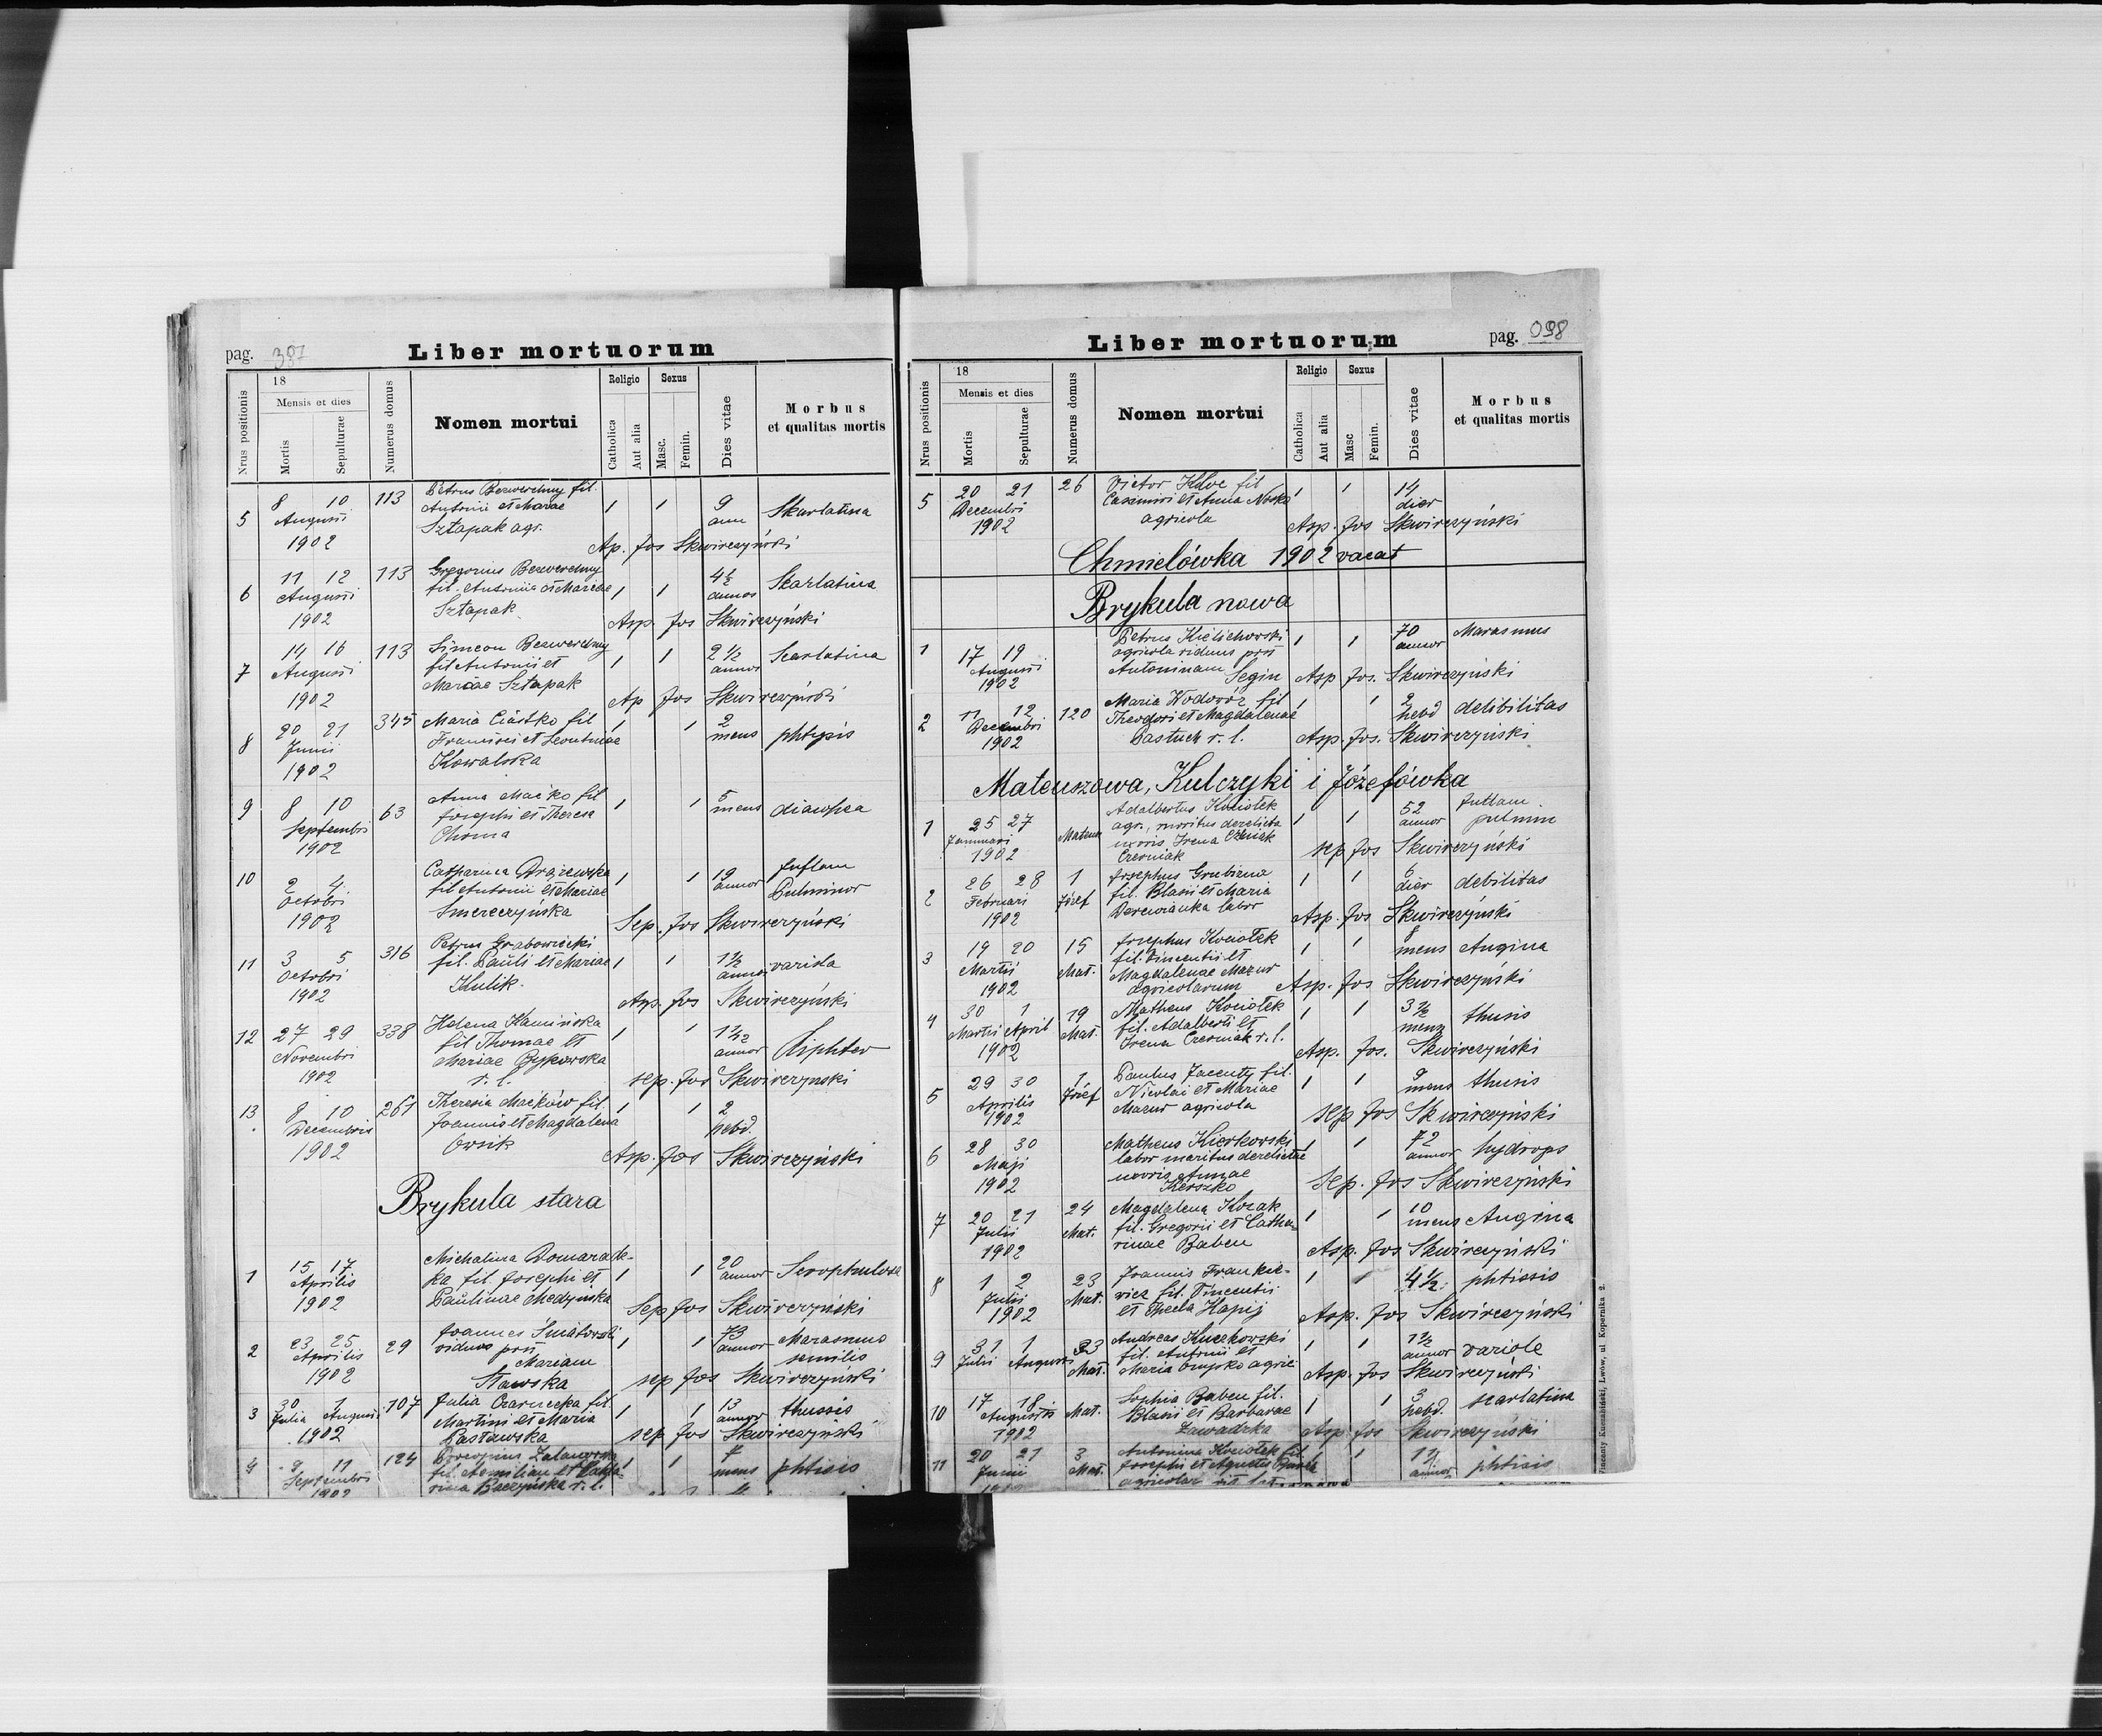 pag. 397
Liber mortuorum
Nrus positionis
18
Mensis et dies
Mortis
Sepulturae
Numerus domus
Nomen mortui
Religio
Catholica
Aut alia
Sexus
Masc.
Femin.
Dies vitae
Morbus
et qualitas mortis
5
8 10
Augusti
1902
113
Petrus Bezwerchny fil.
Antonii et Mariae
Sztapak agr.
1 1
9
ann
Skarlatina
Ap. Jos Skwirczyński
6
11 12
Augusti
1902
113
Gregorius Bezwerchny
fil. Antonii et Mariae
Sztapak
1 1
4½
annos
Scarlatina
Asp. Jos Skwirczyński
7
14 16
Augusti
1902
113
Simeon Bezwerchny
fil Antonii et
Mariae Sztapak
1 1
2½
annos
Scarlatina
Ap Jos Skwirczyński
8
20 21
Junii
1902
345
Maria Ciastko fil
Francisci et Leontinae
Kowalska
1 1
2
mens
phtysis
9
8 10
Septembri
1902
63
Anna Maćko fil
Josephi et Theresa
Choma
1 1
5
mens
diarrhea
10
2 4
Octobri
1902
Catharina Drążewska
fil Antonii et Mariae
Smereczyńska
1 1
19
annor
Inflam
Pulminor
Sep. Jos Skwirczyński
11
3 5
Octobri
1902
316
Petrus Grabowiecki
fil. Pauli et Mariae
Kulik.
1 1
1½
annor
variola
Asp. Jos Skwirczyński
12
27 29
Novembri
1902
338
Helena Kamińska
fil Thomae et
Mariae Bykowska
r. l.
1 1
1½
annor
Diphter
sep. Jos Skwirczynski
13
8 10
Decembris
1902
261
Theresia Maćków fil.
Joannis et Magdalena
Owsik
1 1
2
hebd.
Asp. Jos Skwirczyński
Brykula stara
1
15 17
Aprilis
1902
Michalina Domaradz-
ka fil. Josephi et
Paulinae Medynska
1 1
20
annor
Scrophulosa
Sep Jos Skwirczyński
2
23 25
Aprilis
1902
29
Joannes
viduus post
Mariam
Stawska
1 1
73
annor
Marasmus
senilis
sep Jos Skwirczyński
3
30 1
Julia Augusti
1902
107
Julia Czarnecka fil.
Martini et Maria
Pastawska
1 1
13
annor
thussis
sep Jos Skwirczyński
4
9 11
Septembri
1902
124
fil. Aemilian et
rina Baczyńska r. l.
1 1
mens
phtisis
Liber mortuorum
pag. 098
Nrus positionis
18
Mensis et dies
Mortis
Sepulturae
Numerus domus
Nomen mortui
Religio
Catholica
Aut alia
Sexus
Masc
Femin.
Dies vitae
Morbus
et qualitas mortis
5
20 21
Decembri
1902
26
Victor Klve fil
Casimiri et Anna
agricola
1 1
14
dier
Asp. Jos Skwirczyński
Chmielówka 1902 vacat
Brykula nowa
1
17 19
Augusti
1902
Petrus Kielichowski
agricola viduus post
Antoninam Segin
1 1
70
annor
Marasmus
Asp Jos. Skwirczyński
2
11 12
Decembri
1902
120
Maria Wodwóz fil
Theodori et Magdalenae
Pastuch r. l.
1 1
2
hebd
delibilitas
Asp. Jos. Skwirczyński
Mateuszowa, Kulczyki i Józefówka
1
25 27
Januari
1902
Mateusz
Adalbertus Kociołek
agr., moritus derelicta
uxoris Irena
Czerniak
1 1
52
annor
Inflam.
pulmin
sep Jos Skwirczyński
2
26 28
Februari
1902
1
Józef
Josephus Grubizna
fil. Blasii et Maria
Derewianka labor
1 1
6
dier
debilitas
Asp. Jos Skwirczyński
3
19 20
Martii
1902
15
Mat.
Josephus Kociołek
fil. Vincentii et
Magdalenae Mazur
agricolarum
1 1
8
mens
Angina
Asp. Jos Skwirczyński
4
30 1
Martii April
1902
19
Mat.
Matheus Kociołek
fil. Adalberti et
Irena Czerniak r. l.
1 1
3½
mens
thusis
Asp. Jos. Skwirczyński
5
29 30
Aprilis
1902
1
Józef
Paulus Jacenty fil.
Nicolai et Mariae
Mazur agricola
1 1
9
mens
thusis
sep Jos Skwirczyński
6
28 30
Maji
1902
Matheus Kierkowski
labor maritus derelictae
uxoris Annae
Kerszko
1 1
72
annor
hydrops
Sep. Jos Skwirczyński
7
20 21
Julii
1902
24
Mat.
Magdalena Kozak
fil. Gregorii et Catha-
rinae Baben
1 1
10
mens
Angina
Asp. Jos Skwirczyński
8
1 2
Julii
1902
23
Mat.
Joannis Frankie-
wicz fil. Vincentii
et Thecla Hapij
1 1
4½
phtissis
Asp. Jos Skwirczyński
9
31 1
Julii Augusti
33
Mat.
Andreas Kuczkowski
fil. Antonii et
Maria Onyśko agric
1 1
1½
annor
variole
Asp. Jos Skwirczyński
10
17 18
Augustis
1902
Mat.
Sophia Baben fil.
Blasii et Barbarae
Zawadzka
1 1
3
hebd.
scarlatina
Asp Jos Skwirczyński
11
20 21
Junii
3
Mat.
Antonina Kociołek fil
Josephi et Agnetis
1 1
annor
phtisis
Vincenty Kuczabiński, Lwów, ul Kopernika 2.